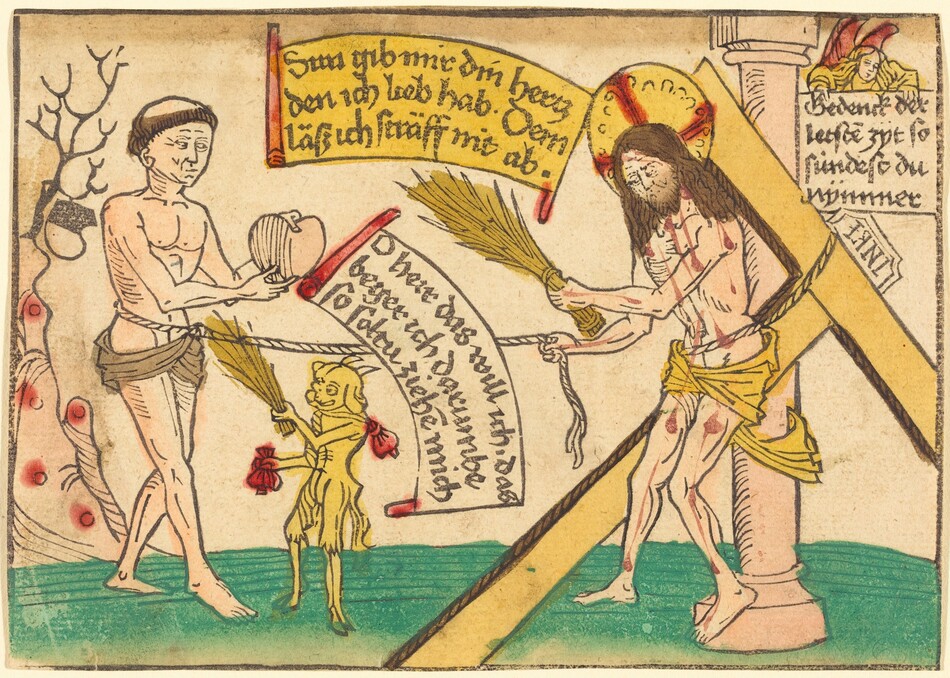 Sun gib mir din hertz
den ich lieb hab. Dem
läß ich sträff nit ab.
O herr das will ich. das
beger ich darumb
so soltu ziehē mich
Gedenck der
letstē zyt so
sündest du
nymmer
INRI